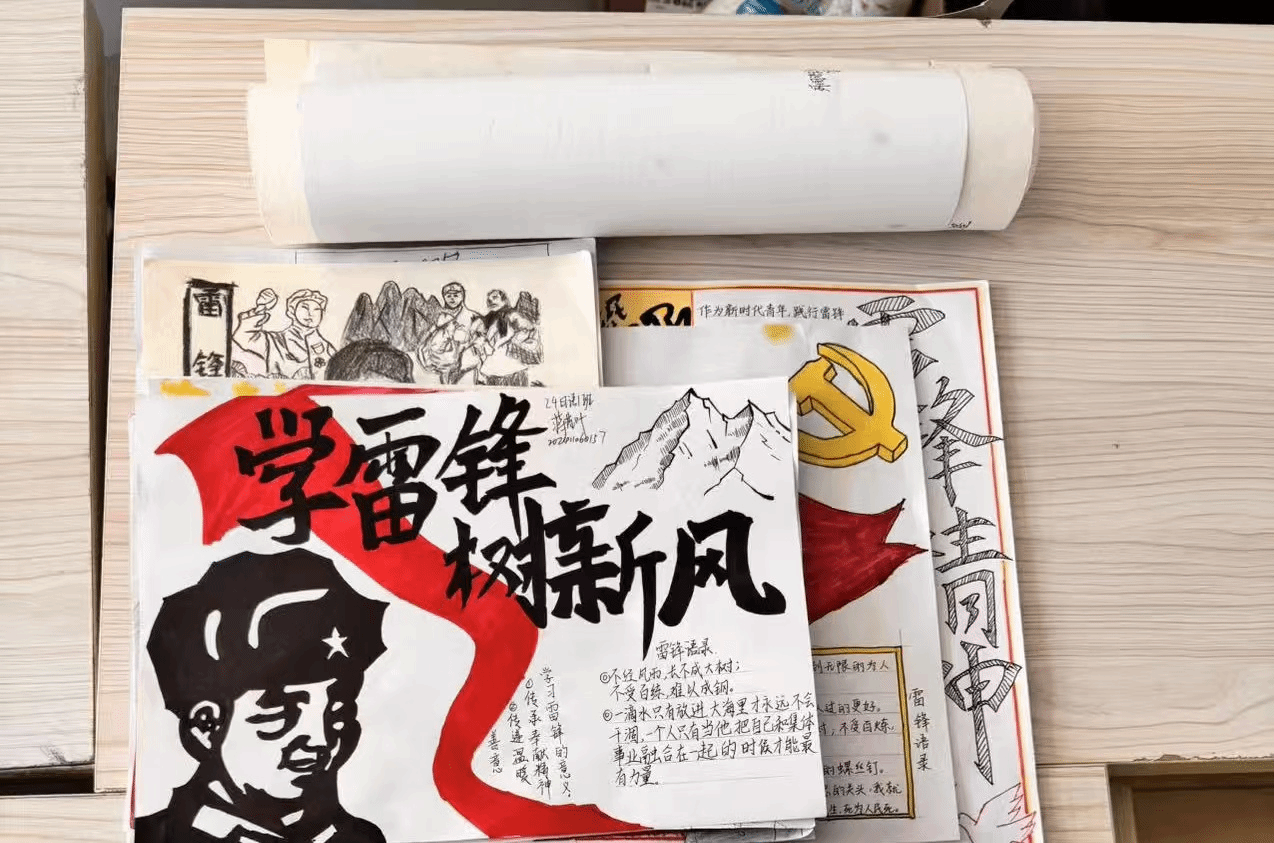 雷
锋
作为新时代青年,践行雷锋
学雷锋
树新风
24日语1班
雷锋语录
①不经风雨,长不成大树;
不受百练,难以成钢。
②一滴水只有放进大海里才永远不会
干涸,一个人只有当他把自己和集体
事业融合在一起的时候才能最
有力量。
学习雷锋的意义:
①传承奉献精神
②传递温暖
善意
到无限的为人
过的更好。
不受百炼,
的螺丝钉。
生,死为人民死。
雷锋语录
锋